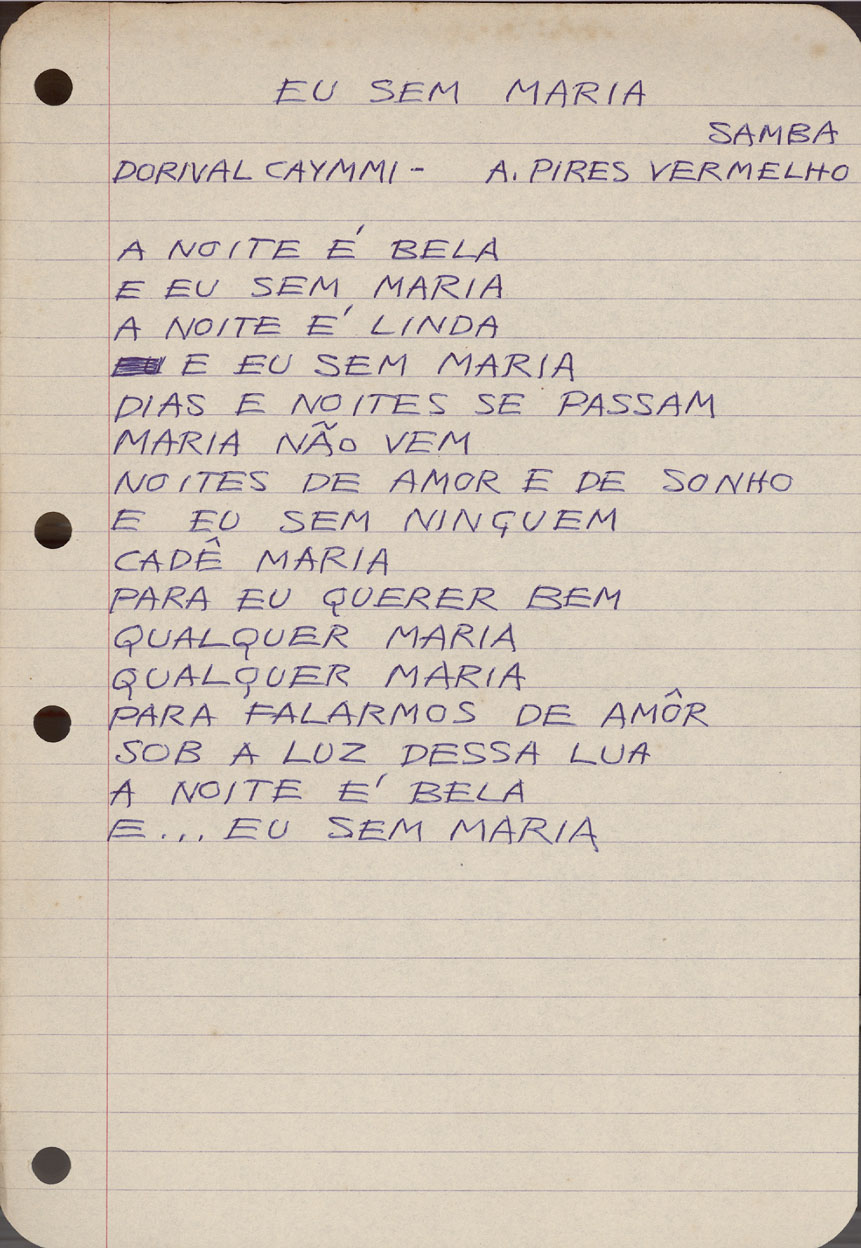 EU SEM MARIA
SAMBA
DORIVAL CAYMMI - A. PIRES VERMELHO
A NOITE É BELA
E EU SEM MARIA
A NOITE É LINDA
E EU SEM MARIA
DIAS E NOITES SE PASSAM
MARIA NÃO VEM
NOITES DE AMOR E DE SONHO
E EU SEM NINGUEM
CADÊ MARIA
PARA EU QUERER BEM
QUALQUER MARIA
QUALQUER MARIA
PARA FALARMOS DE AMÔR
SOB A LUZ DESSA LUA
A NOITE É BELA
E... EU SEM MARIA